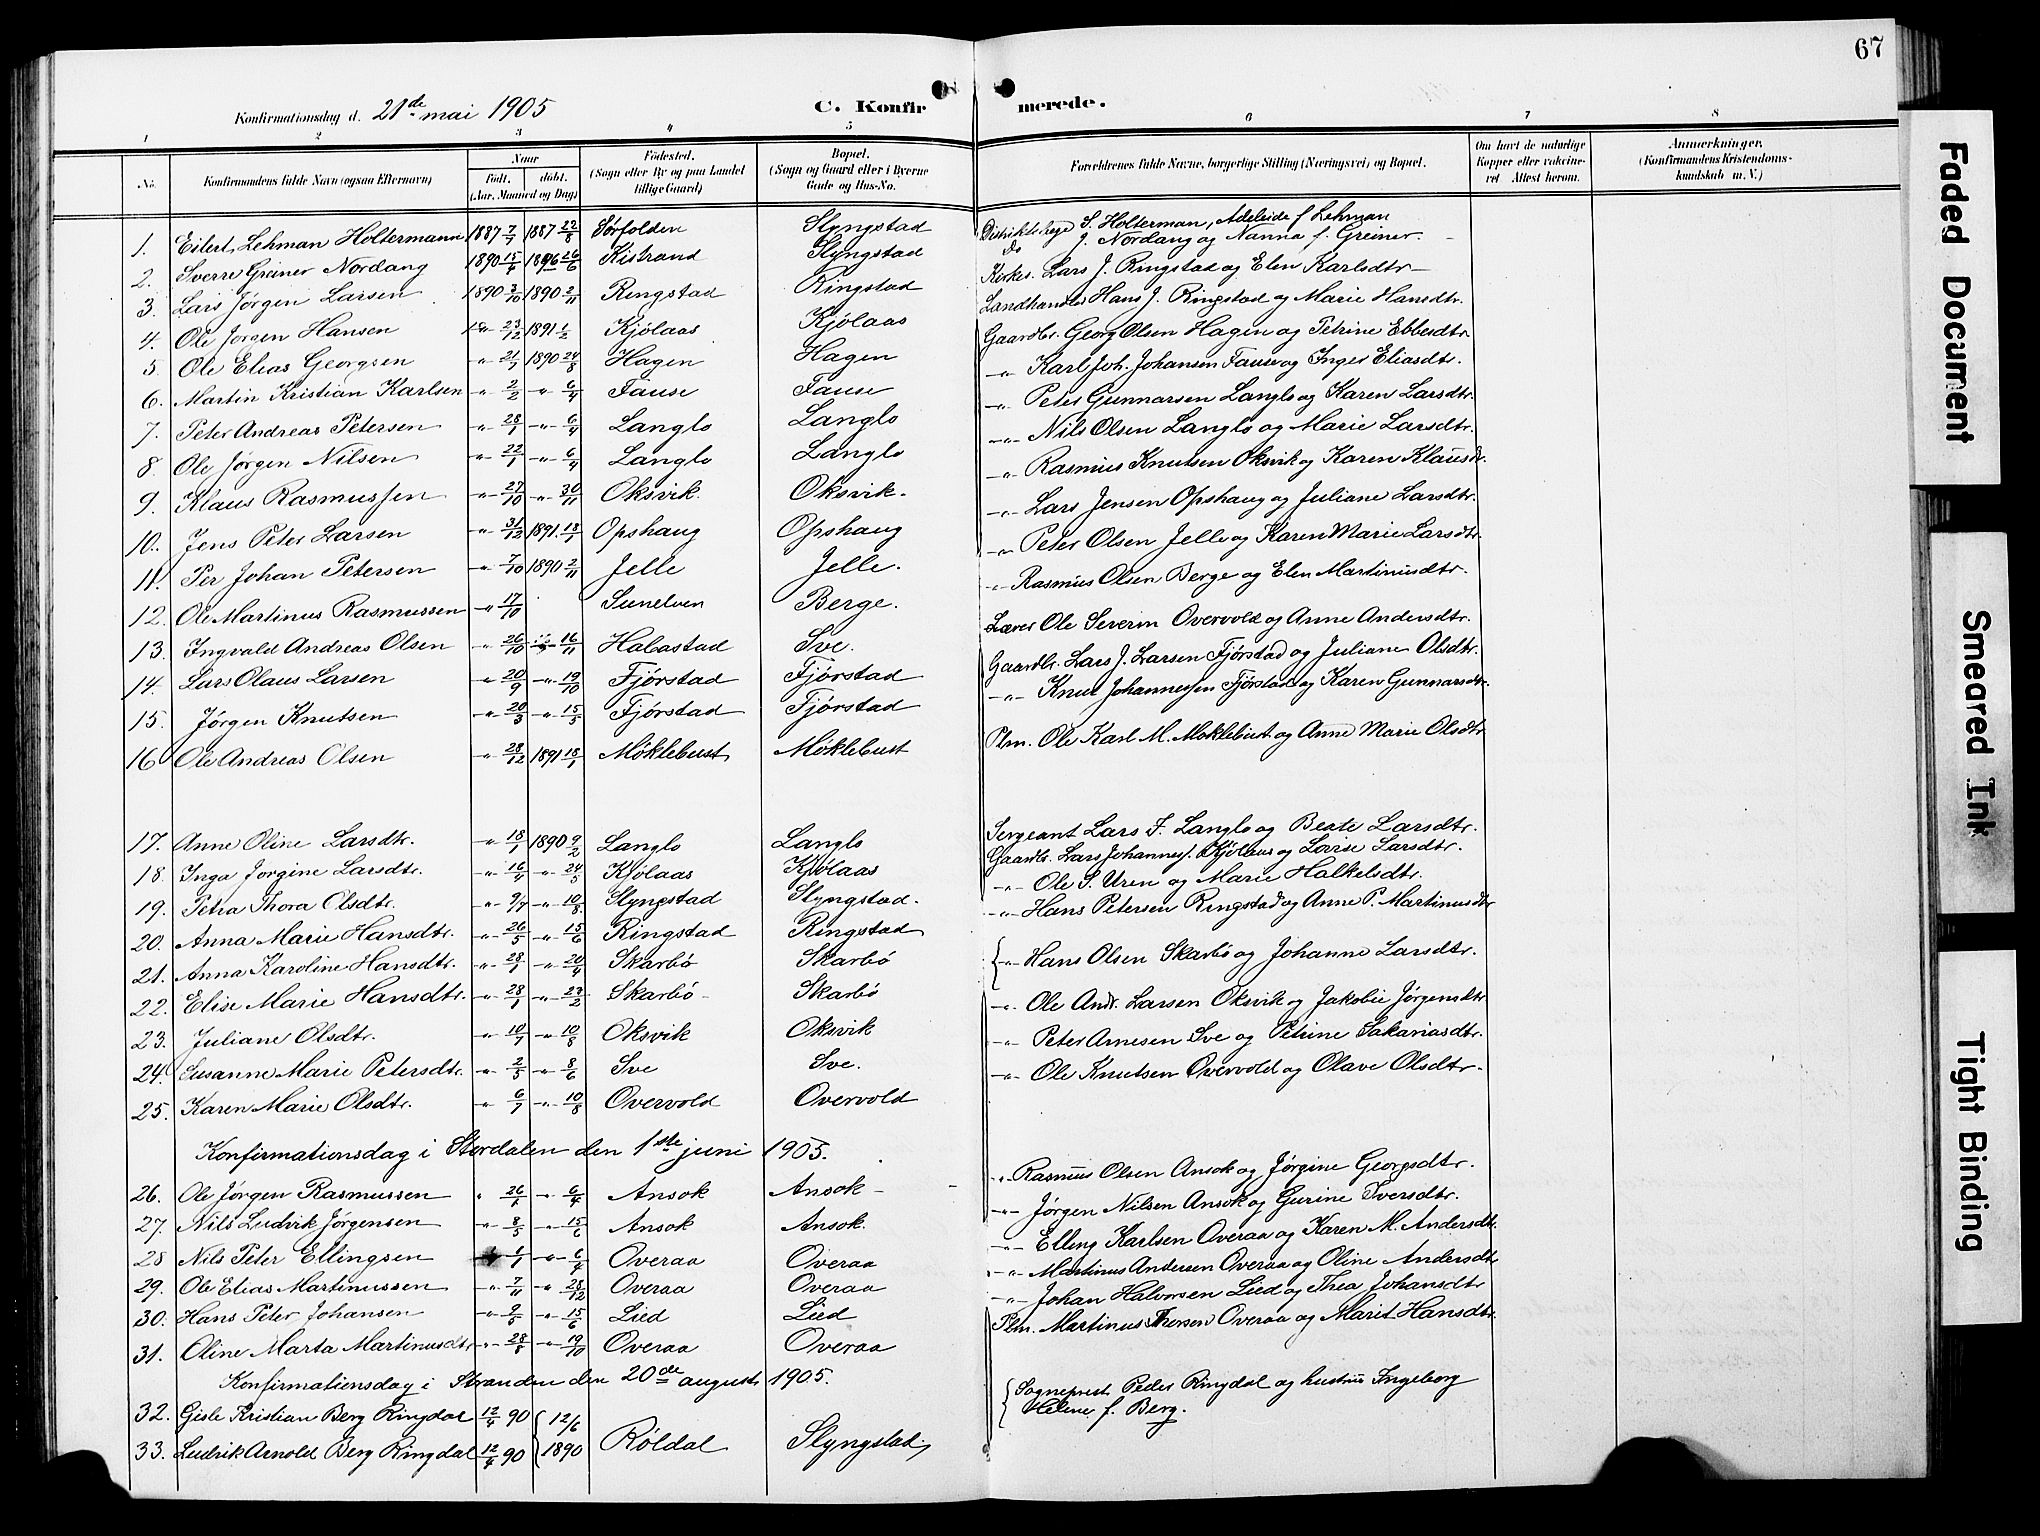 67
Konfirmationsdag d. 21de mai 1905 C. Konfirmerede.
1 2 3 4 5 6 7 8
No. Konfirmandens fulde Navn (ogsaa Efternavn) Naar Født. døbt. (Aar, Maaned og Dag) Fødested. (Sogn eller By og paa Landet tillige Gaard) Bopæl. (Sogn og Gaard eller i Byerne Gade og Hus-No. Forældrenes fulde Navne, borgerlige Stilling (Næringsvei) og Bopæl. Om havt de naturlige Kopper eller vakcineret Attest herom. Anmerkninger. (Konfirmandens Kristendomskundskab m. V.)
1. Eilert Lehman Holtermann 1887 7/7 1887 22/8 Sørfolden Slyngstad Distriktslæge S. Holterman, Adeleide f. Lehman
2. Sverre Greiner Nordang 1890 15/4 1890 26/6 Kistrand Slyngstad Do J. Nordang og Nanna f. Greiner.
3. Lars Jørgen Larsen 1890 3/10 1890 2/11 Ringstad Ringstad Kirkes. Lars J. Ringstad og Elen Karlsdtr
4. Ole Jørgen Hansen -"- 23/12 1891 1/2 Kjølaas Kjølaas Landhandler Hans J. Ringstad og Marie Hansdtr.
5. Ole Elias Georgsen -"- 21/7 1890 24/8 Hagen Hagen Gaardbr. Georg Olsen Hagen og Petrine Ebbesdtr
6. Martin Kristian Karlsen -"- 2/2 -"- 6/4 Fause Fause -"- Karl Joh. Johansen Fause og Inger Eliasdtr.
7. Peter Andreas Petersen -"- 28/1 -"- 6/4 Langlo Langlo -"- Peter Gunnarsen Langlo og Karen Larsdtr.
8. Ole Jørgen Nilsen -"- 22/1 -"- 6/4 Langlo Langlo -"- Nils Olsen Langlo og Marie Larsdtr.
9. Klaus Rasmussen -"- 27/10 -"- 30/11 Oksvik. Oksvik. -"- Rasmus Knutsen Oksvik og Karen Klausdr.
10. Jens Peter Larsen -"- 31/12 1891. 18/1 Opshaug Opshaug -"- Lars Jensen Opshaug og Juliane Larsdtr.
11. Per Johan Petersen -"- 7/10 1890 2/11 Jelle Jelle. -"- Peter Olsen Jelle og Karen Marie Larsdtr.
12. Ole Martinus Rasmussen -"- 17/10 Sunelven Berge. -"- Rasmus Olsen Berge og Elen Martinusdtr.
13. Ingvald Andreas Olsen -"- 26/10 -"- 16/11 Habostad Sve. Lærer Ole Severin Overvold og Anne Andersdtr.
14. Lars Olaus Larsen -"- 20/9 -"- 19/10 Fjørstad Fjørstad Gaardbr. Lars J. Larsen Fjørstad og Juliane Olsdtr.
15. Jørgen Knutsen -"- 20/3 -"- 15/5 Fjørstad Fjørstad -"- Knut Johannessen Fjørstad og Karen Gunnarsdtr.
16 Ole Andreas Olsen -"- 28/12 1891 18/1 Møklebust Møklebust Plm. Ole Karl M. Møklebust og Anne Marie Olsdtr
17. Anne Oline Larsdtr. -"- 18/1 1890 9/2 Langlo Langlo Sergeant Lars F. Langlo og Beate Larsdtr.
18. Inga Jørgine Larsdtr. -"- 16/4 -"- 24/5 Kjølaas Kjølaas Gaardbr. Lars Johannes. Kjølaas og Lovise Larsdtr.
19. Petra Thora Olsdtr. -"- 9/7 -"- 10/8 Slyngstad Slyngstad. -"- Ole S. Uren og Marie Halkelsdtr.
20. Anna Marie Hansdtr. -"- 26/5 -"- 15/6 Ringstad Ringstad -"- Hans Petersen Ringstad og Anne P. Martinusdtr
21. Anna Karoline Hansdtr. -"- 28/1 -"- 20/4 Skarbø Skarbø { -"- Hans Olsen Skarbø og Johanne Larsdtr.
22. Elise Marie Hansdtr. -"- 28/1 -"- 23/2 Skarbø Skarbø
23. Juliane Olsdtr. -"- 10/7 -"- 10/8 Oksvik Oksvik -"- Ole Andr. Larsen Oksvik og Jakobie Jørgensdtr
24. Susanne Marie Petersdtr. -"- 2/5 -"- 8/6 Sve Sve. -"- Peter Arnesen Sve og Petrine Sakariasdtr.
25. Karen Marie Olsdtr. -"- 6/7 -"- 10/8 Overvold Overvold -"- Ole Knutsen Overvold og Olave Olsdtr.
Konfirmationsdag i Stordalen den 1ste juni 1905.
26. Ole Jørgen Rasmussen " 26/1 -"- 6/4 Ansok Ansok -"- Rasmus Olsen Ansok og Jørgine Georgsdtr.
27. Nils Ludvik Jørgensen -"- 8/5 -"- 15/6 Ansok Ansok. -"- Jørgen Nilsen Ansok og Gurine Iversdtr.
28 Nils Peter Ellingsen 6/1 -"- 6/4 Overaa Overaa -"- Elling Karlsen Overaa og Karen M. Andersdtr.
29. Ole Elias Martinussen -"- 7/11 -"- 28/12 Overaa Overaa -"- Martinus Andersen Overaa og Oline Andersdtr
30. Hans Peter Johansen -"- 9/5 -"- 15/6 Lied Lied -"- Johan Halvorsen Lied og Thea Johansdtr
31. Oline Marta Martinusdtr -"- 28/8 -"- 19/10 Overaa Overaa Plm. Martinus Iversen Overaa og Marit Hansdtr.
Konfirmationsdag i Stranden den 20de august 1905.
32. Gisle Kristian Berg Ringdal 12/4 90 { 12/6 { Sogneprest Peder Ringdal og hustru Ingeborg
33. Ludvik Arnold Berg Ringdal 12/4 90 1890 Røldal Slyngstad Helene f. Berg.
Faded Document
Smeared Ink
Tight Binding